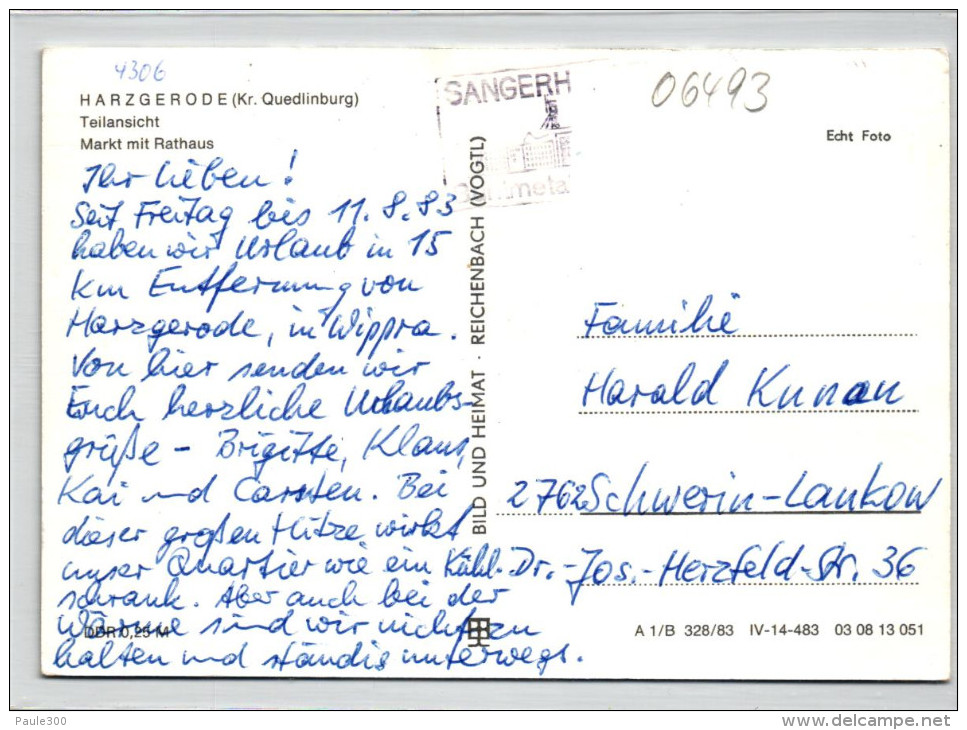 4306
HARZGERODE (Kr. Quedlinburg)
Teilansicht
Markt mit Rathaus
Ihr Lieben!
Seit Freitag bis 11.8.83
haben wir Urlaub in 15
km Entfernung von
Harzgerode, in Wippra.
Von hier senden wir
Euch herzliche Urlaubs-
grüße – Brigitte, Klaus,
Kai und Carsten. Bei
dieser großen Hitze wirkt
unser Quartier wie ein Kühl-
schrank. Aber auch bei der
Wärme sind wir nicht zu
halten und ständig unterwegs.
DDR 0,25 M
BILD UND HEIMAT · REICHENBACH (VOGTL)
SANGERH
06493
Echt Foto
Familie
Harald Kunau
2762 Schwerin-Lankow
Dr.-Jos.-Herzfeld-Str. 36
A 1/B 328/83 IV-14-483 03 08 13 051
Paule300
www.delcampe.net